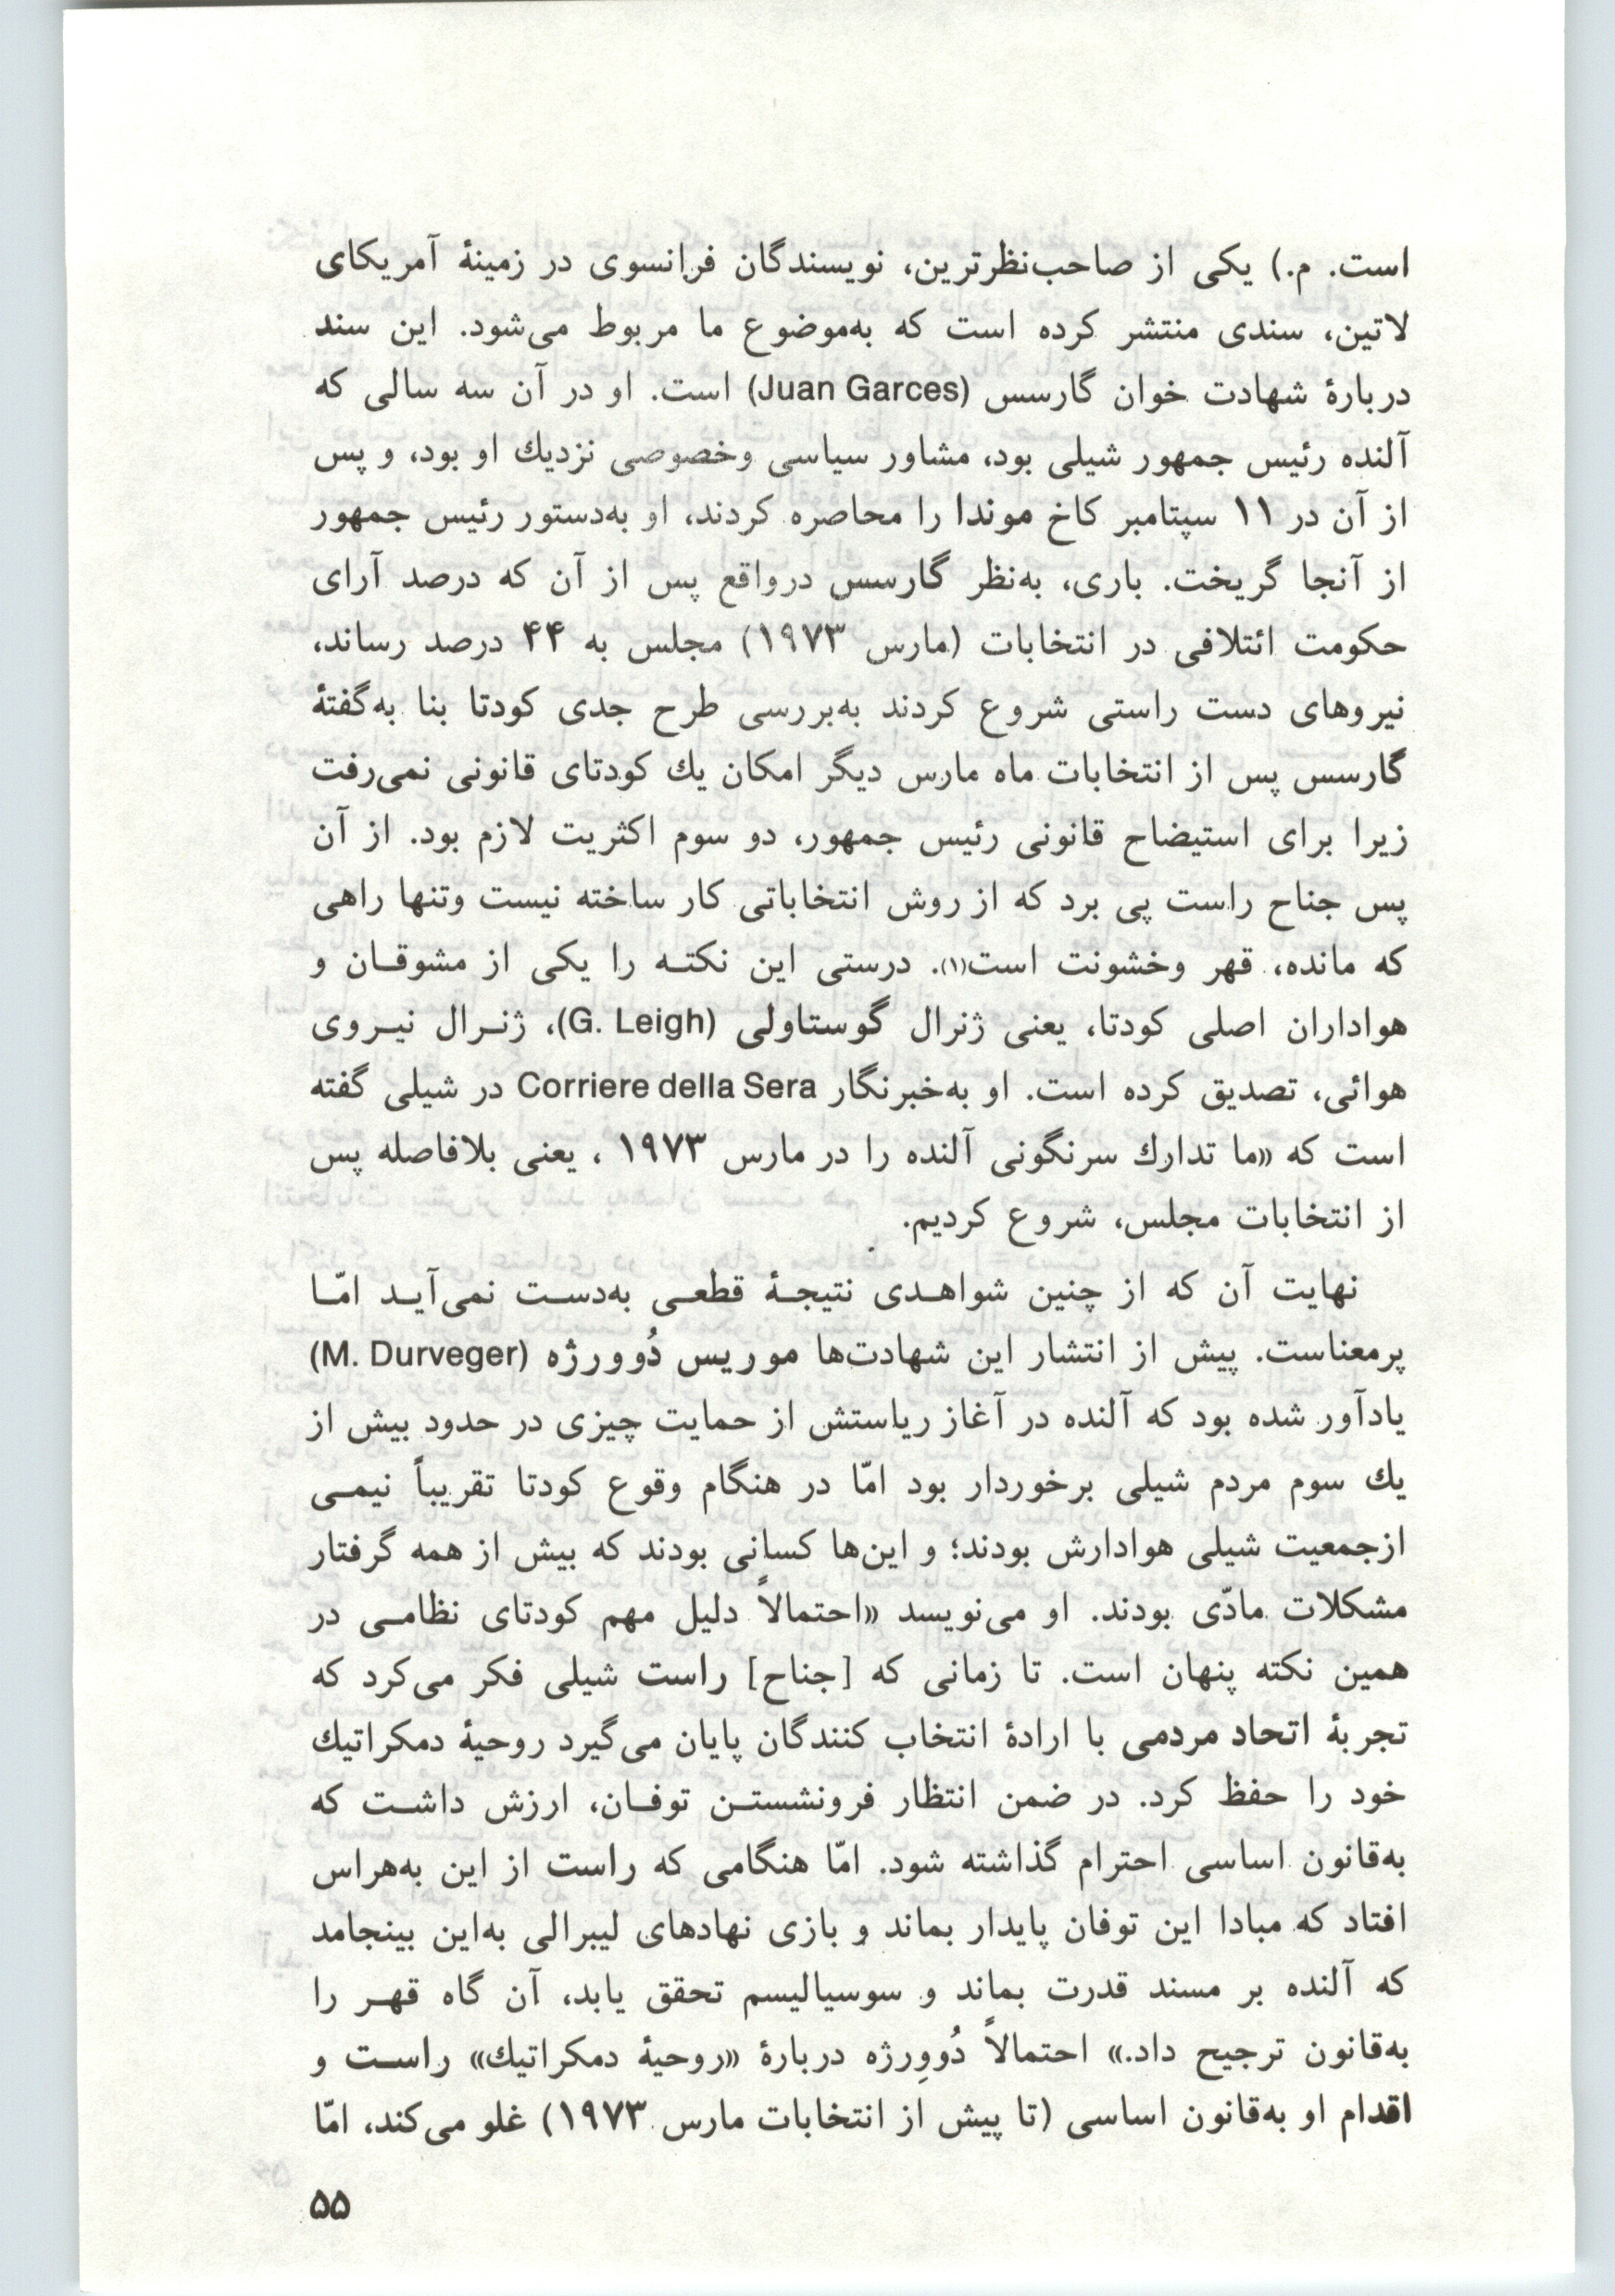 است. م.) یکی از صاحب‌نظرترین، نویسندگان فرانسوی در زمینهٔ آمریکای
لاتین، سندی منتشر کرده است که به‌موضوع ما مربوط می‌شود. این سند
دربارهٔ شهادت خوان گارسس (Juan Garces) است. او در آن سه سالی که
آلنده رئیس جمهور شیلی بود، مشاور سیاسی وخصوصی نزدیك او بود، و پس
از آن در ۱۱ سپتامبر کاخ موندا را محاصره کردند، او به‌دستور رئیس جمهور
از آنجا گریخت. باری، به‌نظر گارسس درواقع پس از آن که درصد آرای
حکومت ائتلافی در انتخابات (مارس ۱۹۷۳) مجلس به ۴۴ درصد رساند،
نیروهای دست راستی شروع کردند به‌بررسی طرح جدی کودتا بنا به‌گفتهٔ
گارسس پس از انتخابات ماه مارس دیگر امکان یك کودتای قانونی نمی‌رفت
زیرا برای استیضاح قانونی رئیس جمهور، دو سوم اکثریت لازم بود. از آن
پس جناح راست پی برد که از روش انتخاباتی کار ساخته نیست وتنها راهی
که مانده، قهر وخشونت است(۱). درستی این نکتـه را یکی از مشوقـان و
هواداران اصلی کودتا، یعنی ژنرال گوستاولی (G. Leigh)، ژنـرال نیـروی
هوائی، تصدیق کرده است. او به‌خبرنگار Corriere della Sera در شیلی گفته
است که «ما تدارك سرنگونی آلنده را در مارس ۱۹۷۳ ، یعنی بلافاصله پس
از انتخابات مجلس، شروع کردیم.
نهایت آن که از چنین شواهـدی نتیجـهٔ قطعـی به‌دسـت نمی‌آیـد امّـا
پرمعناست. پیش از انتشار این شهادت‌ها موریس دُوورژه (M. Durveger)
یادآور شده بود که آلنده در آغاز ریاستش از حمایت چیزی در حدود بیش از
یك سوم مردم شیلی برخوردار بود امّا در هنگام وقوع کودتا تقریباً نیمـی
ازجمعیت شیلی هوادارش بودند؛ و این‌ها کسانی بودند که بیش از همه گرفتار
مشکلات مادّی بودند. او می‌نویسد «احتمالاً دلیل مهم کودتای نظامـی در
همین نکته پنهان است. تا زمانی که [جناح] راست شیلی فکر می‌کرد که
تجربهٔ اتحاد مردمی با ارادهٔ انتخاب کنندگان پایان می‌گیرد روحیهٔ دمکراتیك
خود را حفظ کرد. در ضمن انتظار فرونشستـن توفـان، ارزش داشـت که
به‌قانون اساسی احترام گذاشته شود. امّا هنگامی که راست از این به‌هراس
افتاد که مبادا این توفان پایدار بماند و بازی نهادهای لیبرالی به‌این بینجامد
که آلنده بر مسند قدرت بماند و سوسیالیسم تحقق یابد، آن گاه قهـر را
به‌قانون ترجیح داد.» احتمالاً دُووِرژه دربارهٔ «روحیهٔ دمکراتیك» راسـت و
اقدام او به‌قانون اساسی (تا پیش از انتخابات مارس ۱۹۷۳) غلو می‌کند، امّا
۵۵